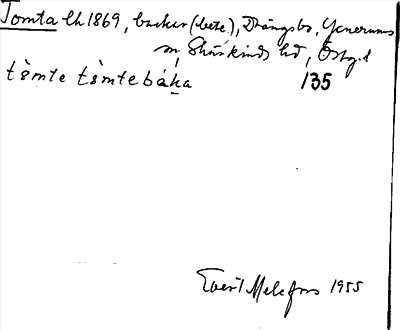 Tomta lh 1869, backar (bete), Drängsbo, Yxnerums
sn, Skärkinds hd, Östg.l
tòmte tòmtebáka 135
Evert Melefors 1955